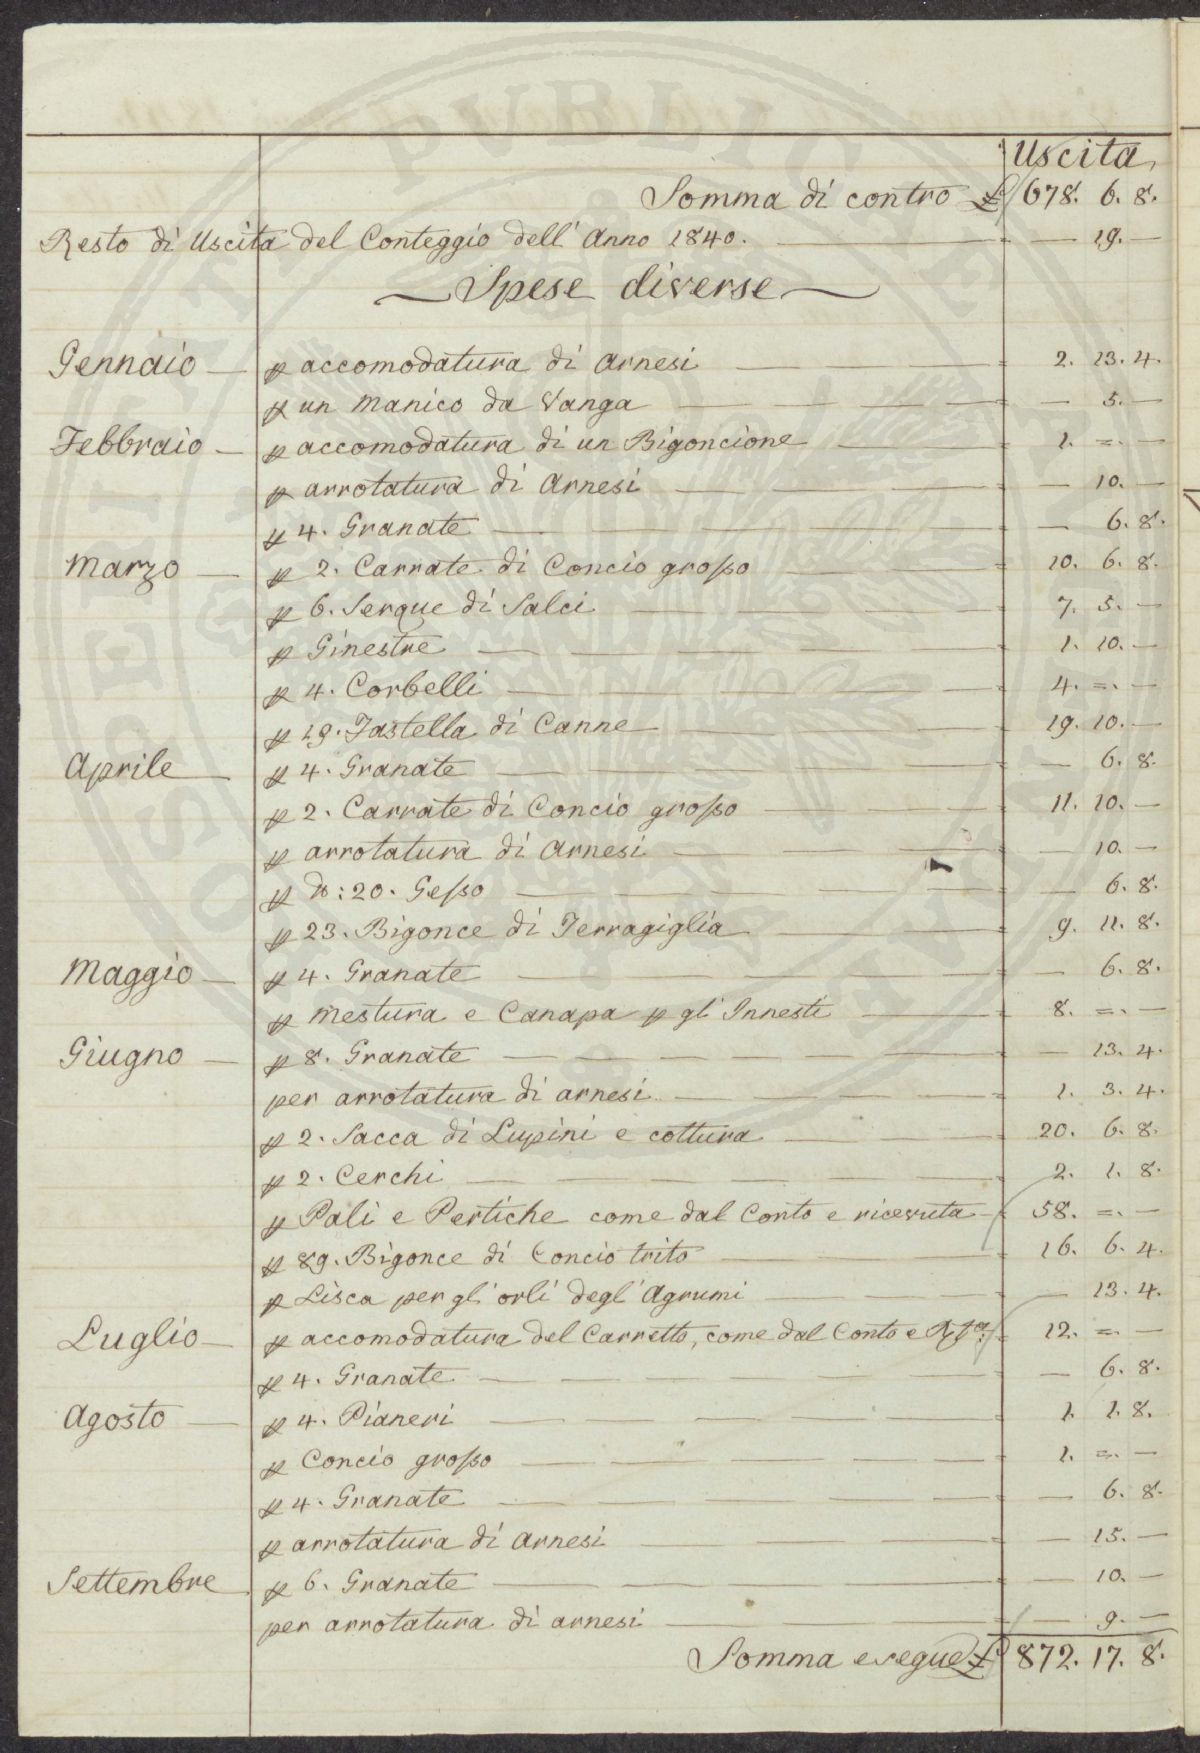 Uscita
Somma di contro £ 678. 6. 8.
Resto di Uscita del Conteggio dell' Anno 1840. — — 19. —
Spese diverse
Gennaio — p accomodatura di Arnesi — 2. 13. 4.
p un Manico da Vanga — — 5. —
Febbraio — p accomodatura di un Bigoncione — 1. =. —
p arrotatura di Arnesi — — 10. —
p 4. Granate — — 6. 8.
Marzo — p 2. Carrate di Concio grosso — 10. 6. 8.
p 6. Serque di Salci — 7. 5. —
p Ginestre — 1. 10. —
p 4. Corbelli — 4. =. —
p 19. Fastella di Canne — 19. 10. —
Aprile — p 4. Granate — — 6. 8.
p 2. Carrate di Concio grosso — 11. 10. —
p arrotatura di Arnesi — — 10. —
p lb: 20. Gesso — — 6. 8.
p 23. Bigonce di Terragiglia — 9. 11. 8.
Maggio — p 4. Granate — — 6. 8.
p Mestura e Canapa p gli Innesti — 8. =. —
Giugno — p 8. Granate — — 13. 4.
per arrotatura di arnesi — 1. 3. 4.
p 2. Sacca di Lupini e cottura — 20. 6. 8.
p 2. Cerchi — 2. 1. 8.
p Pali e Pertiche come dal Conto e ricevuta — 58. =. —
p 89. Bigonce di Concio trito — 16. 6. 4.
p Lisca per gl' orli degl' Agrumi — — 13. 4.
Luglio — p accomodatura del Carretto, come dal Conto e — 12. =. —
p 4. Granate — — 6. 8.
Agosto — p 4. Pianeri — 1. 1. 8.
p Concio grosso — 1. =. —
p 4. Granate — — 6. 8.
p arrotatura di Arnesi — — 15. —
Settembre p 6. Granate — — 10. —
per arrotatura di arnesi — — 9. —
Somma e segue £ 872. 17. 8.